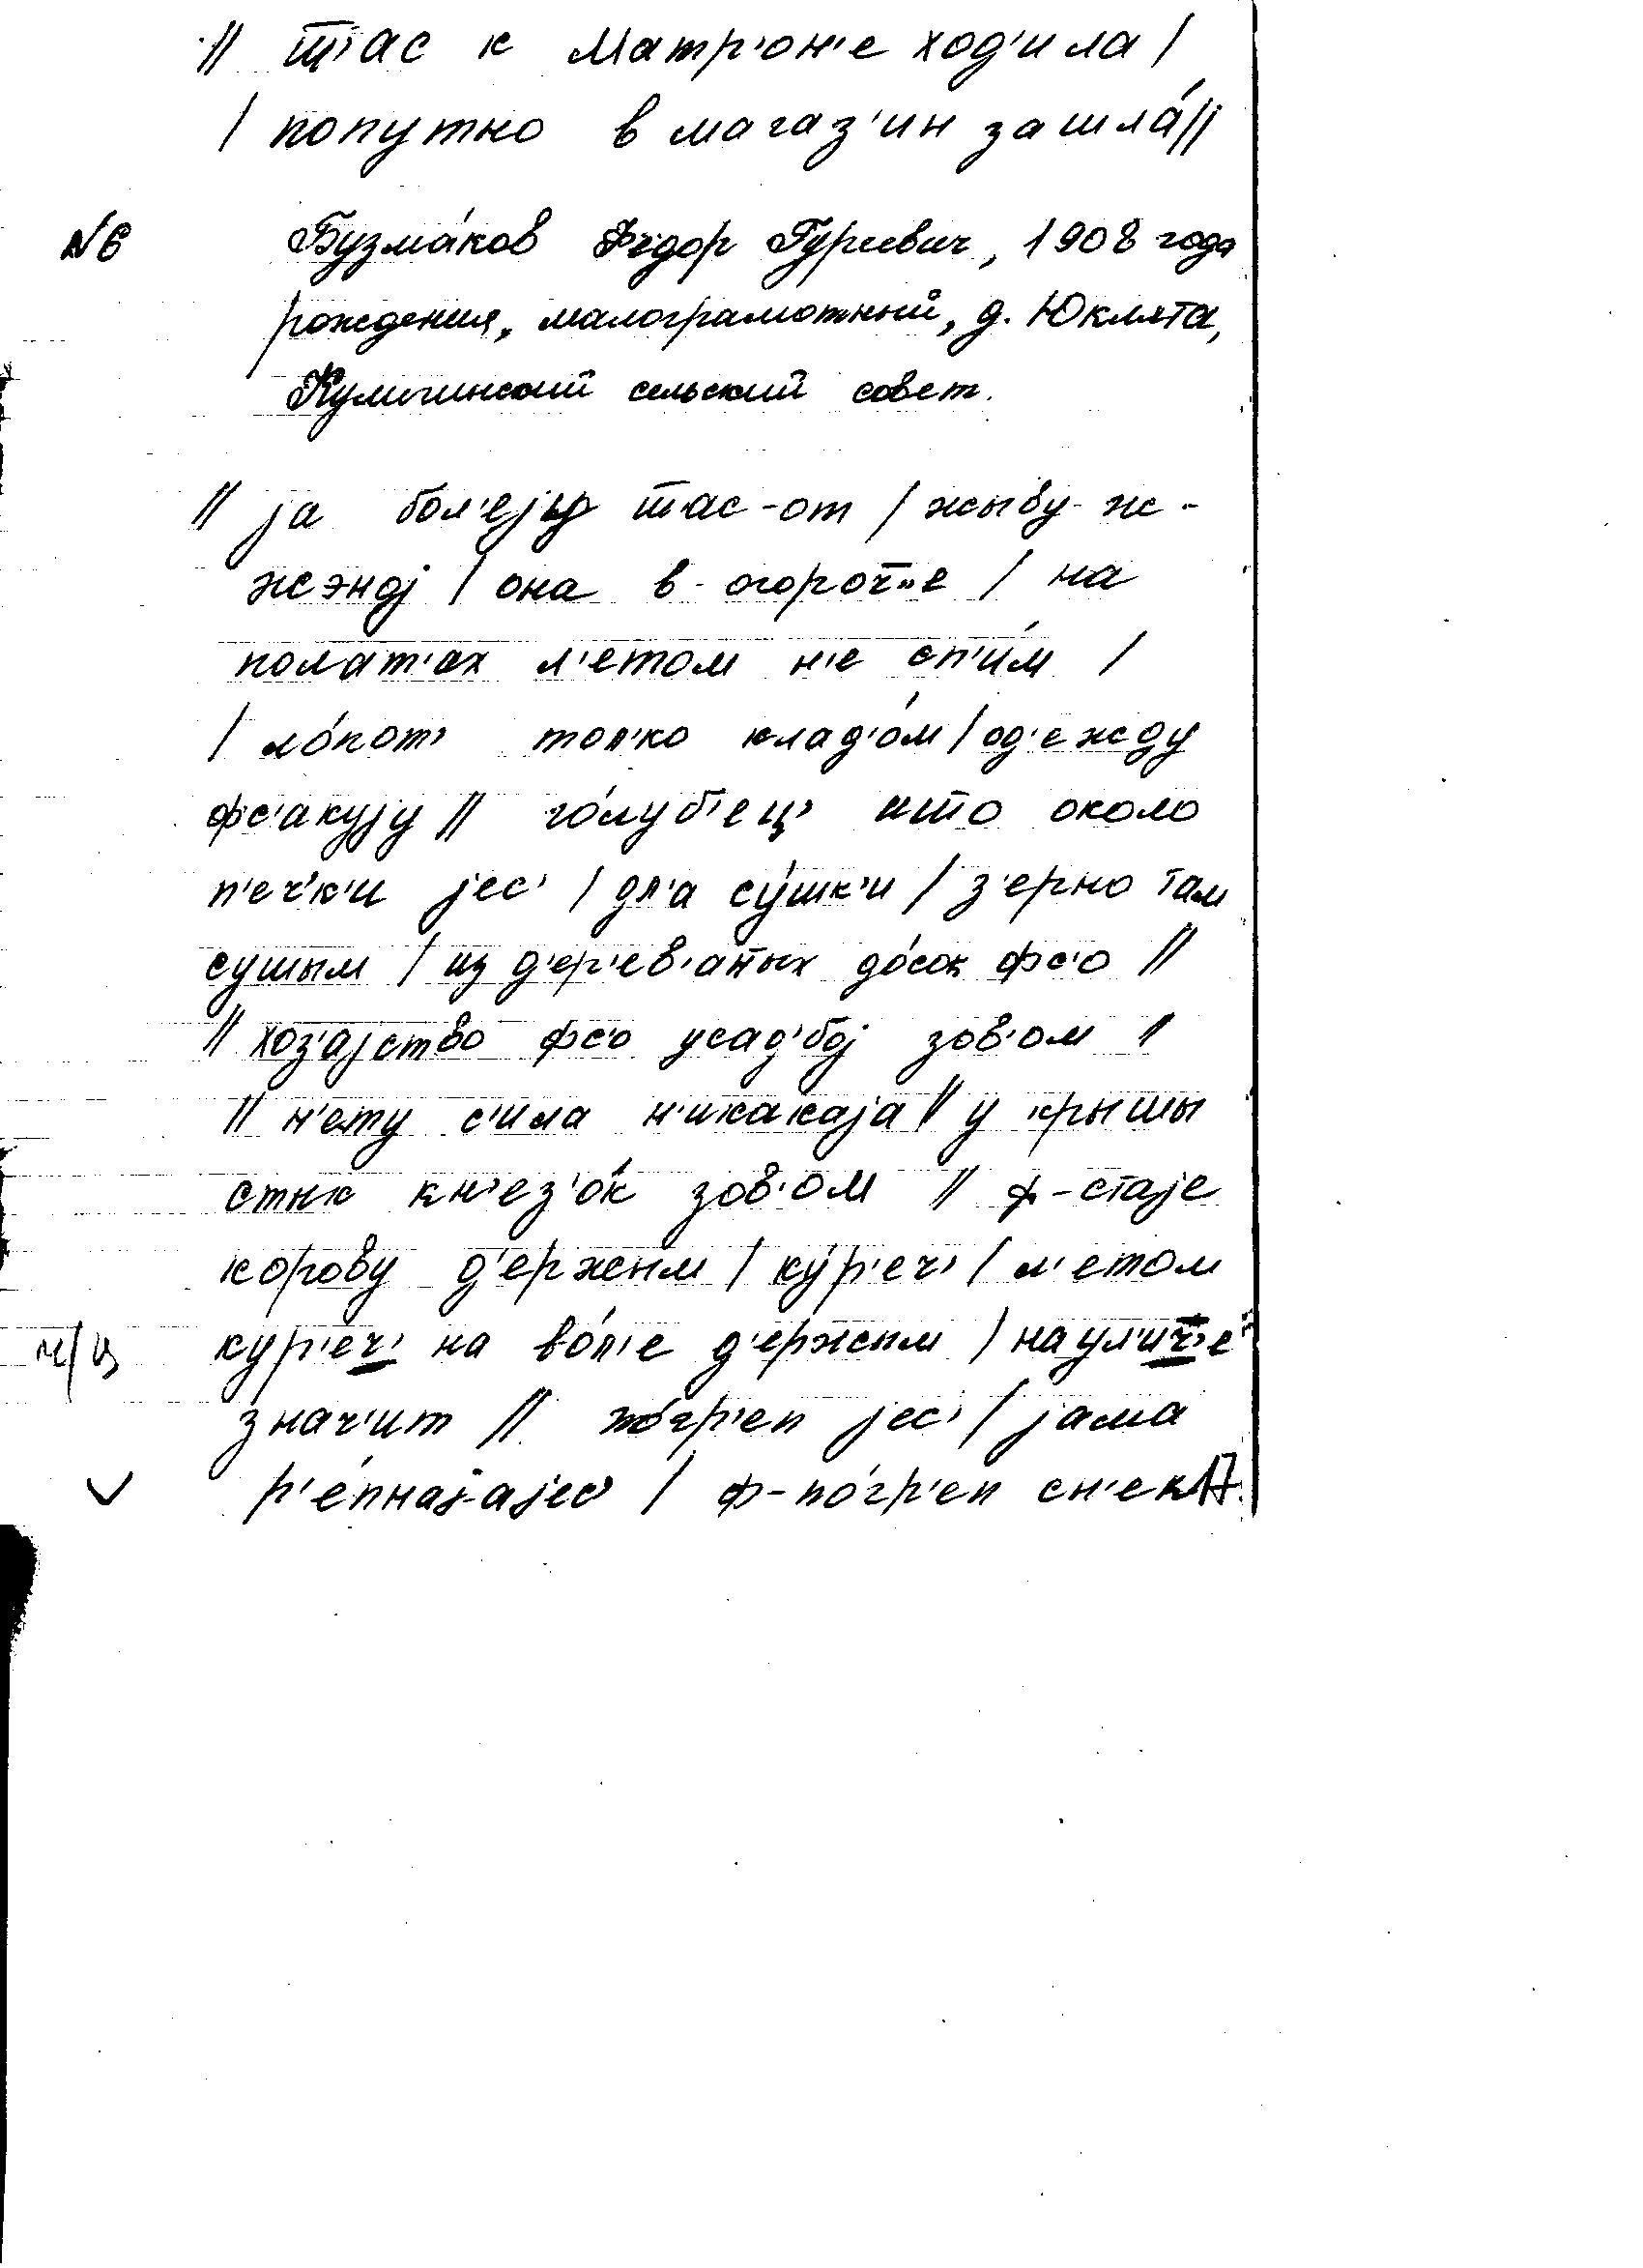 // щ'ас к Матр'он'е ход'ила /
/ попутно в магаз'ин зашла́ //
№6 Бузма́ков Фёдор Гурьевич, 1908 года
рождения, малограмотный, д. Юклята,
Кулигинский сельский совет.
// ја бол'еју щас-от / жыву-ж-
жэној / она в-огороч'е / на
полат'ах л'етом н'е сп'и́м /
/ ло́пот' тол'ко клад'о́м / од'ежду
фс'акују // го́луб'ец' што около
п'еч'к'и јес' / дл'а су́шк'и / з'ерно там
сушым / из д'ер'ев'аных до́сок фс'о //
// хоз'ајство фс'о усад'бој зов'ом //
// н'ету с'ила н'икакаја // у крышы
стык кн'ез'о́к зов'ом // ф-стаје
корову д'ержым / ку́р'еч' / л'етом
ч/ц кур'еч' на во́л'е д'ержым / на ул'ич'е
знач'ит // по́гр'еп јес' / јама
✓ р'е́пнаја-јес' / ф-по́гр'еп сн'ек 17.